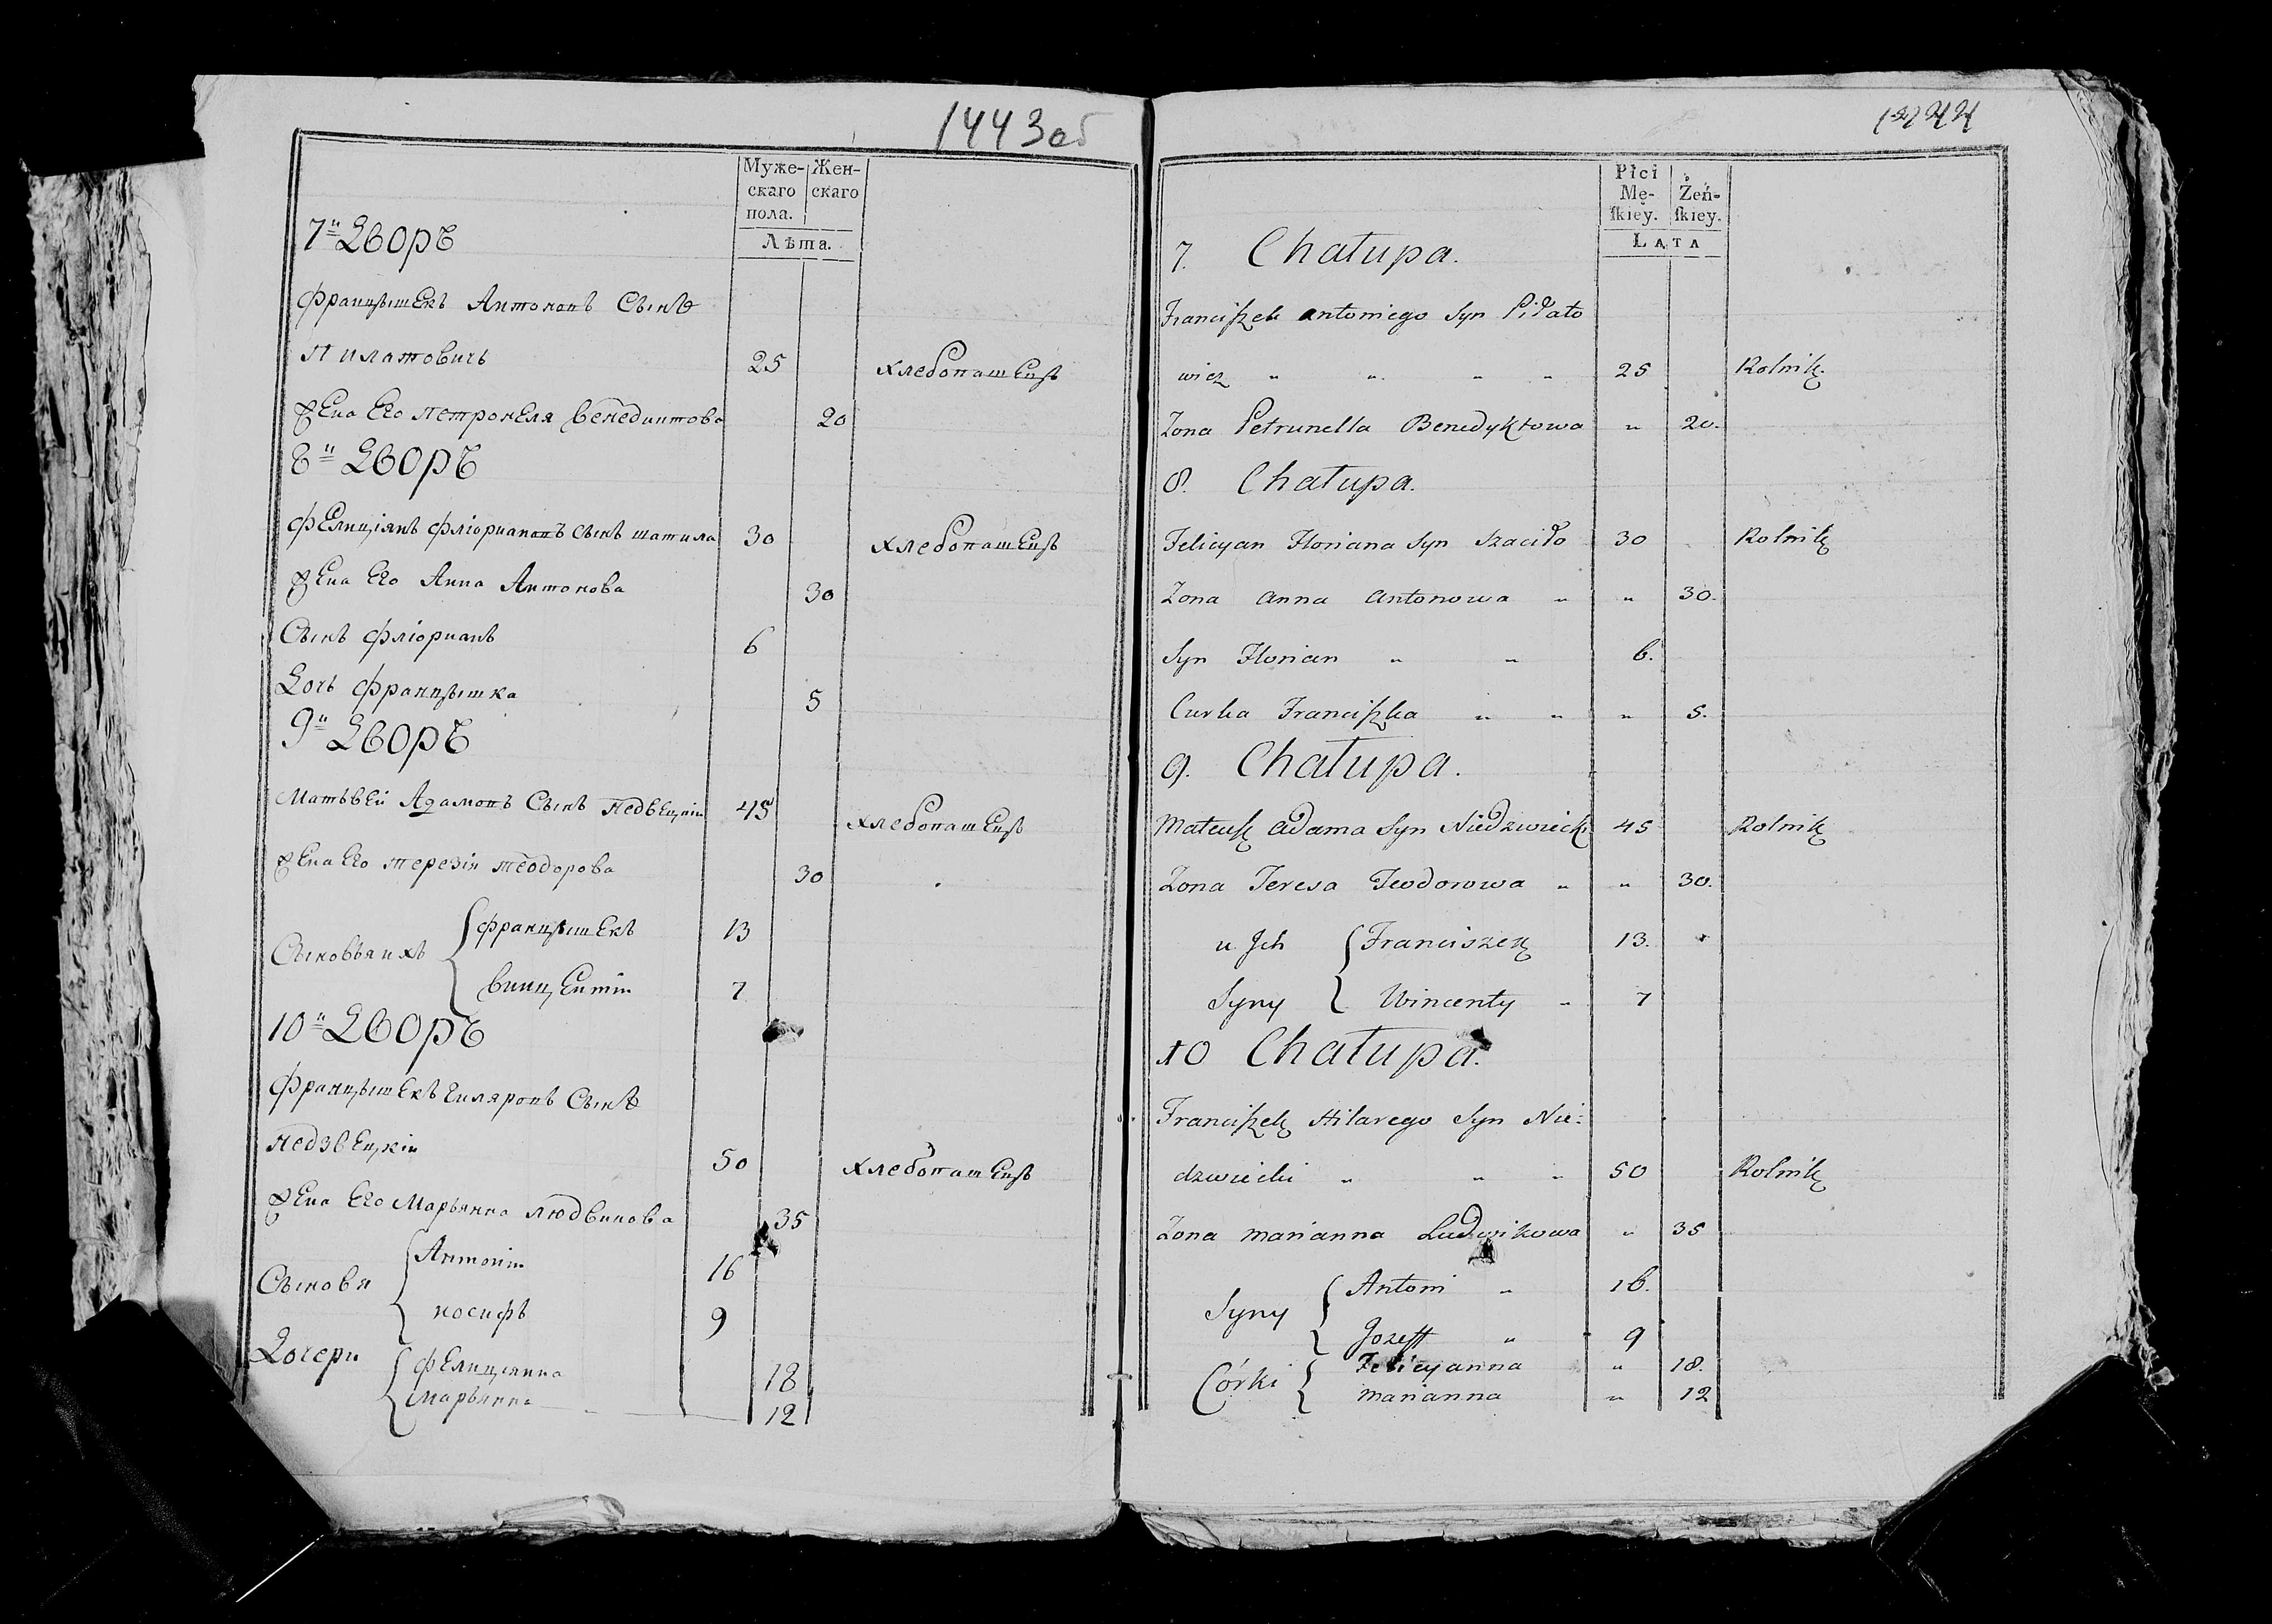 1443об
Муже- Жен-
скаго скаго
пола.
Лѣта.
7й Дворъ
Францышекъ Антоновъ Сынъ
Пилатовичь 25 хлебопашецъ
Жена Его Петронеля Бенедиктова 20
8й Дворъ
Фелиціянъ Фліориановъ сынъ шатила 30 хлебопашецъ
Жена Его Анна Антонова 30
Сынъ Фліорианъ 6
Дочь Францышка 5
9й Дворъ
Матьвей Адамовъ Сынъ Недвецкій 45 хлебопашецъ
Жена Его Терезія Теодорова 30
Сыновья ихъ { Францышекъ 13
Винцентій 7
10й Дворъ
Францышекъ Гиляровъ Сынъ
Недзвецкій 50 хлебопашецъ
Жена Его Марьянна Людвикова 35
Сыновя { Антоній 16
иосифъ 9
Дочери { Фелиціянна 18
Марьянна 12
Płci
Mę- Żeń-
skiey. skiey.
LATA
7. Chałupa.
Franciszek Antoniego Syn Piłato
wicz " " " " 25 Rolnik
Zona Petrunella Benedyktowa " 20.
8. Chałupa.
Felicyan Floriana Syn Szaciło 30 Rolnik
Zona Anna Antonowa " " 30.
Syn Florian " " 6.
Curka Franciszka " " " 5.
9. Chałupa.
Mateusz Adama Syn Niedzwiecki 45 Rolnik
Zona Teresa Teodorowa " " 30.
u Jch { Franciszek 13.
Syny Wincenty " 7
10 Chałupa.
Franciszek Hilarego Syn Nie:
dzwiecki " " " 50 Rolnik
Zona Marianna Ludwikowa " 35
Syny { Antoni " 16.
Jozeff " 9
Córki { Felicyanna " 18.
Marianna " 12